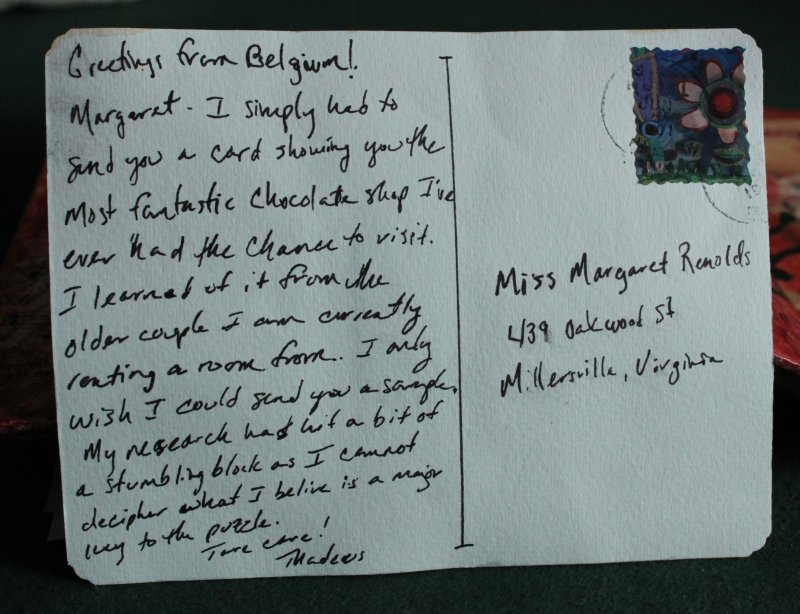 Greetings from Belgium!
Margarat - I simply had to
send you a card showing you the
most fantastic chocolate shop I've
ever had the chance to visit.
I learned of it from the
older couple I am currently
renting a room from. I only
wish I could send you a sample.
My research has hit a bit of
a stumbling block as I cannot
decipher what I belive is a major
key to the puzzle.
Take care!
Madeus
Miss Margaret Renolds
439 Oakwood St
Millersville, Virginia